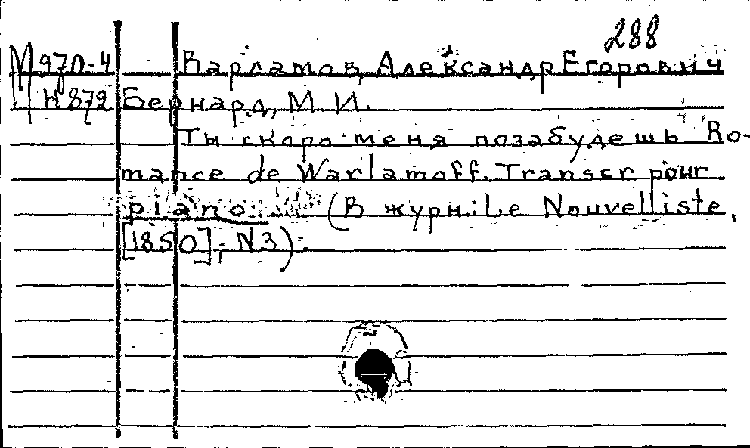 288
М970-4 Варламов, Александр Егорович
Н872 Бернард, М. И.
Ты скоро меня позабудешь Ro-
mance de Warlamoff. Transcr. pour
piano (В журн.: Le Nouvelliste,
[1850], N3).